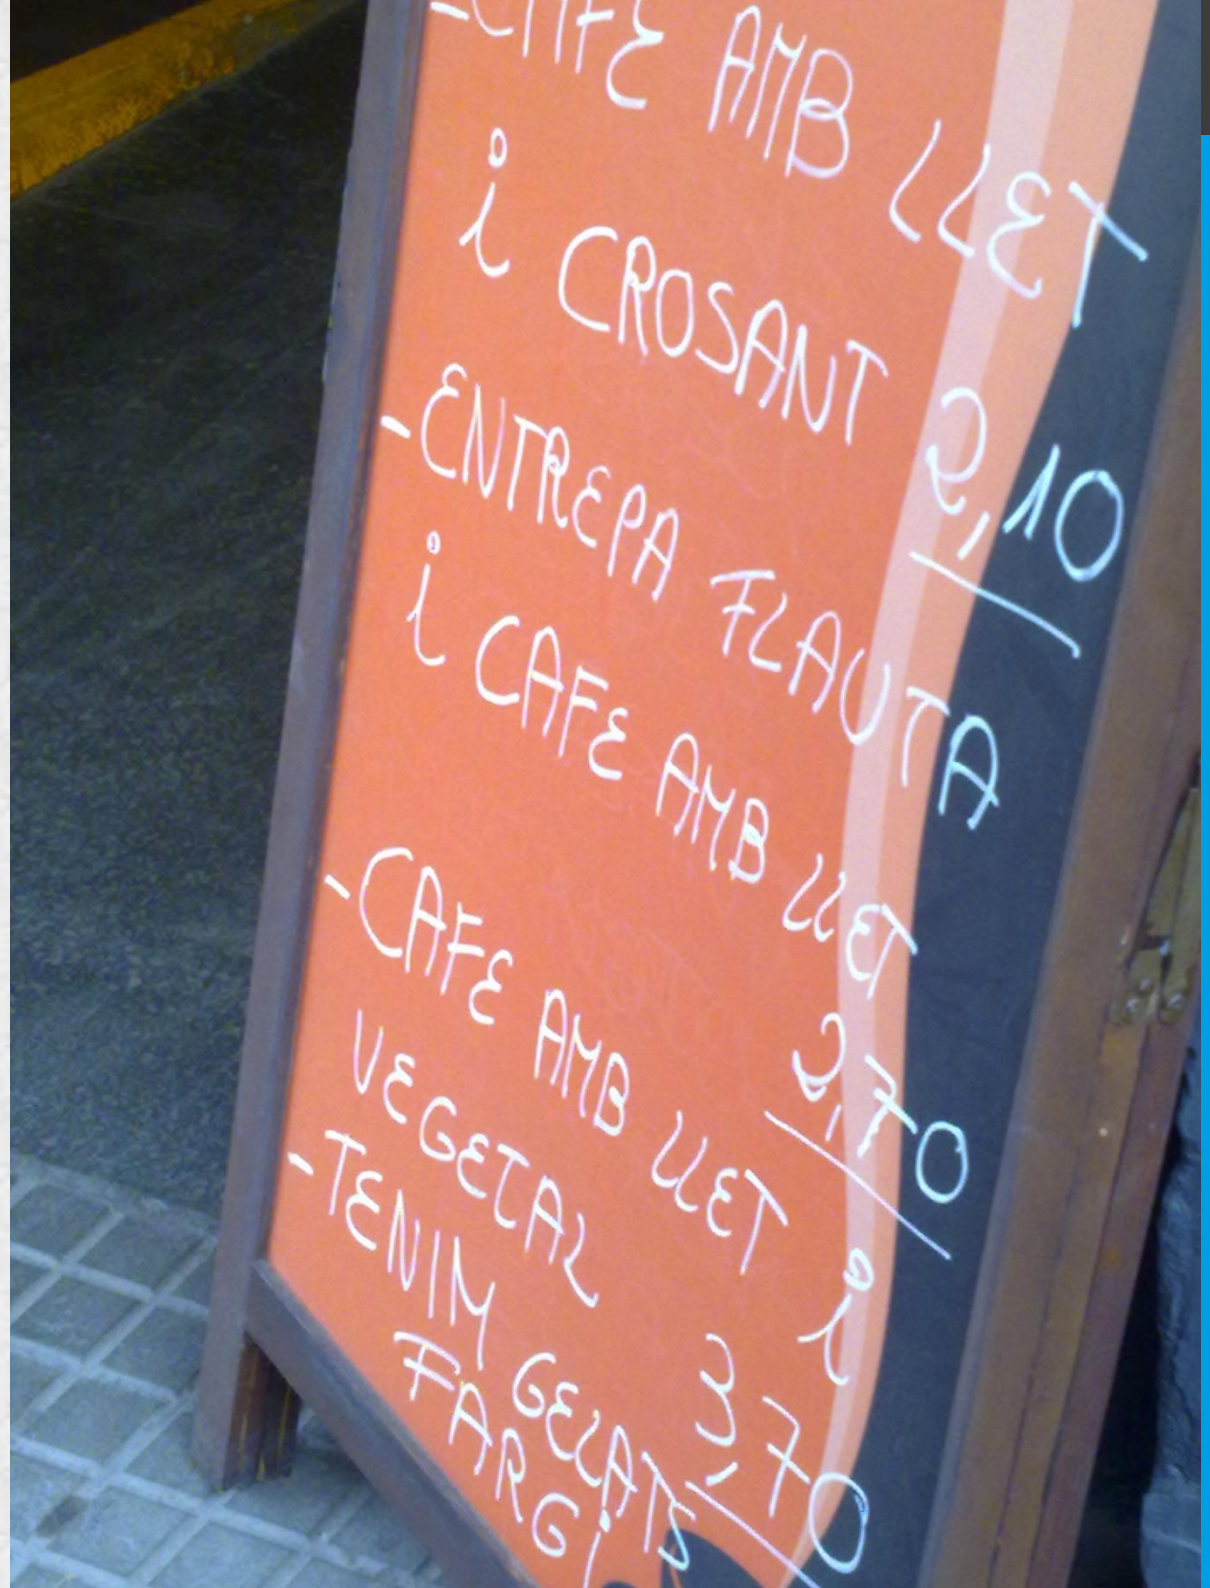 -CAFE AMB LLET
i CROSANT 2,10
-ENTREPA FLAUTA
i CAFE AMB LLET
2,70
-CAFE AMB LLET i
VEGETAL 3,70
-TENIM GELATS
FARGi